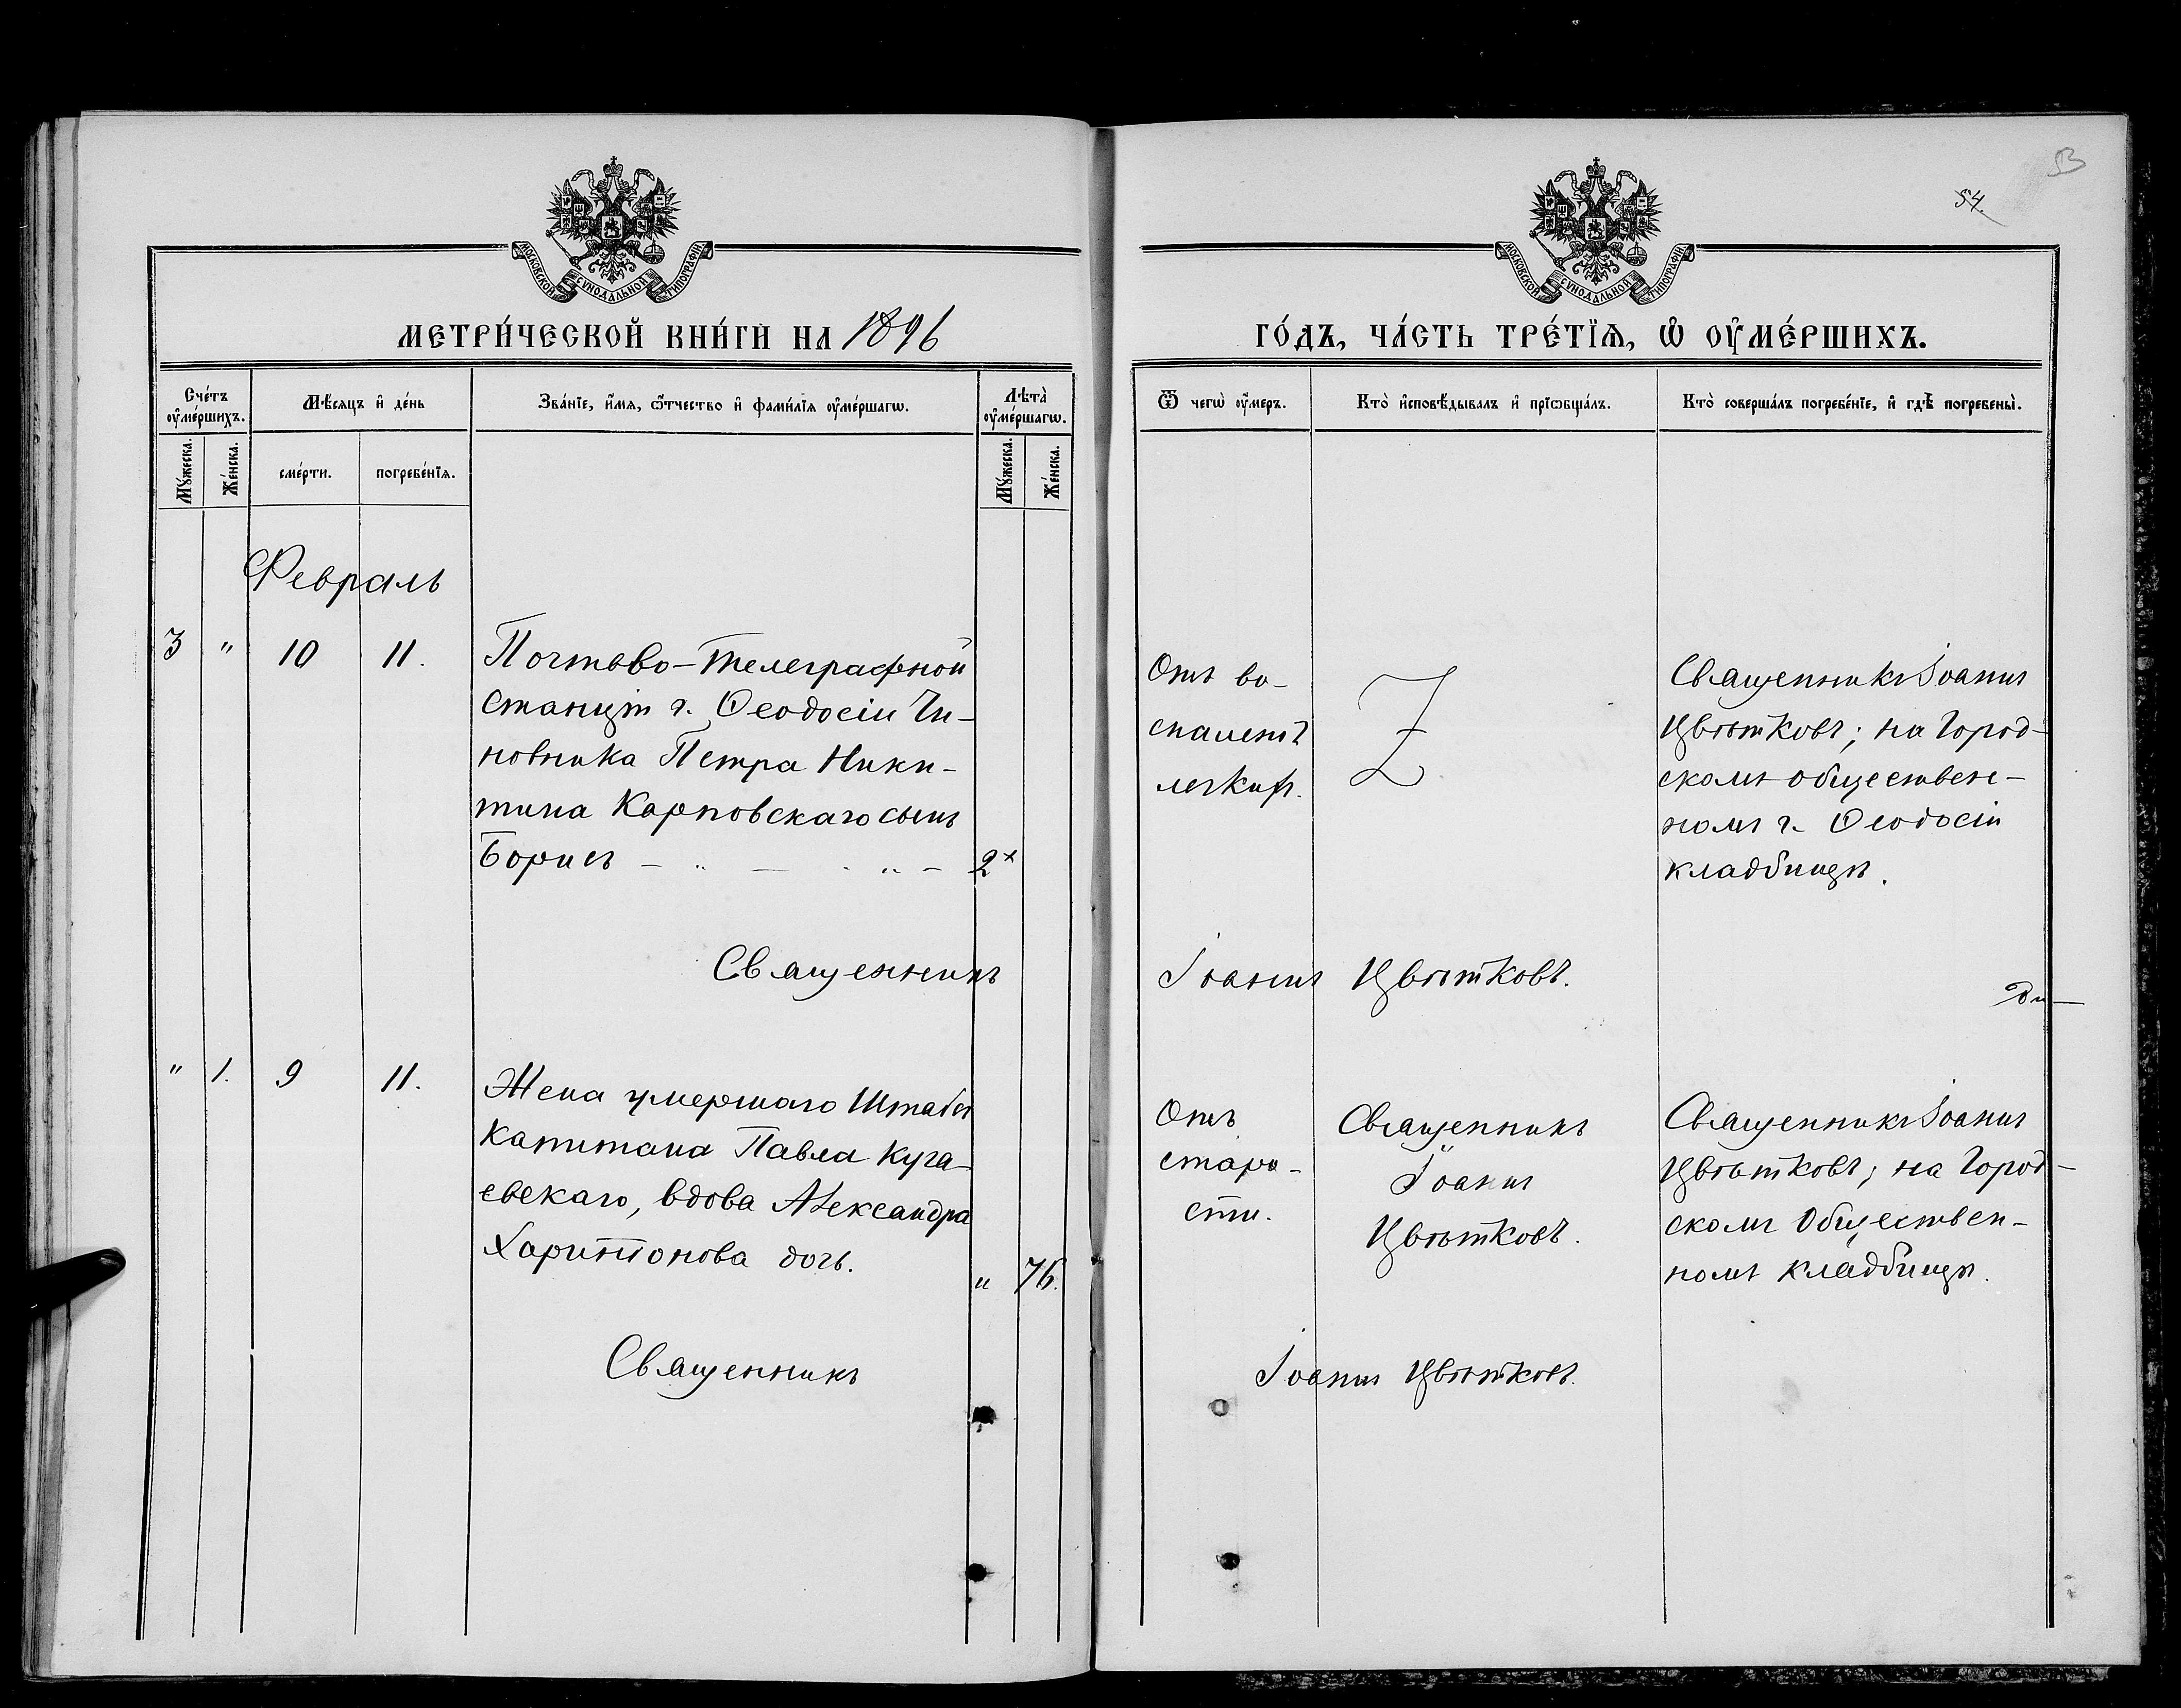 53
54.
МОСКОВСКОЙ СѴНОДАЛЬНОЙ ТИПОГРАФІИ
МОСКОВСКОЙ СѴНОДАЛЬНОЙ ТИПОГРАФІИ
МЕТРИ́ЧЕСКОЙ КНИ́ГИ НА 1896
ГО́ДЪ, ЧА́СТЬ ТРЕ́ТЇѦ, Ѡ҆ ОУ҆МЕ́РШИХЪ.
Сче́тъ оу҆ме́ршихъ.
Мѣ́сяцъ и҆ де́нь
Зва́нїе, и҆́мя, ѻ҆́тчество и҆ фами́лїя оу҆ме́ршагѡ.
Лѣта̀ оу҆ме́ршагѡ.
Мꙋ́жеска.
Же́нска.
сме́рти.
погребе́нїя.
Мꙋ́жеска.
Же́нска.
Ѿ чегѡ̀ оу҆́меръ.
Кто̀ и҆сповѣ́дывалъ и҆ прїѡбща́лъ.
Кто̀ соверша́лъ погребе́нїе, и҆ гдѣ̀ погребены̀.
Февраль
3 " 10 11.
Почтово-телеграфной
станціи г. Ѳеодосіи Чи-
новника Петра Ники-
тина Карповскаго сынъ
Борисъ — " — " — 2
Отъ во-
спаленія
легкихъ.
Священникъ Іоаннъ
Цвѣтковъ; на Город-
скомъ обществен-
номъ г. Ѳеодосіи
кладбищѣ.
Священникъ Іоаннъ Цвѣтковъ.
" 1. 9 11.
Жена умершаго Штабсъ
Капитана Павла Куга-
евскаго, вдова Александра
Харитонова дочь.
" 76.
Отъ
старо-
сти.
Священникъ
Іоаннъ
Цвѣтковъ.
Священникъ Іоаннъ
Цвѣтковъ; на Город-
скомъ Обществен-
номъ кладбищѣ.
Священникъ Іоаннъ Цвѣтковъ.